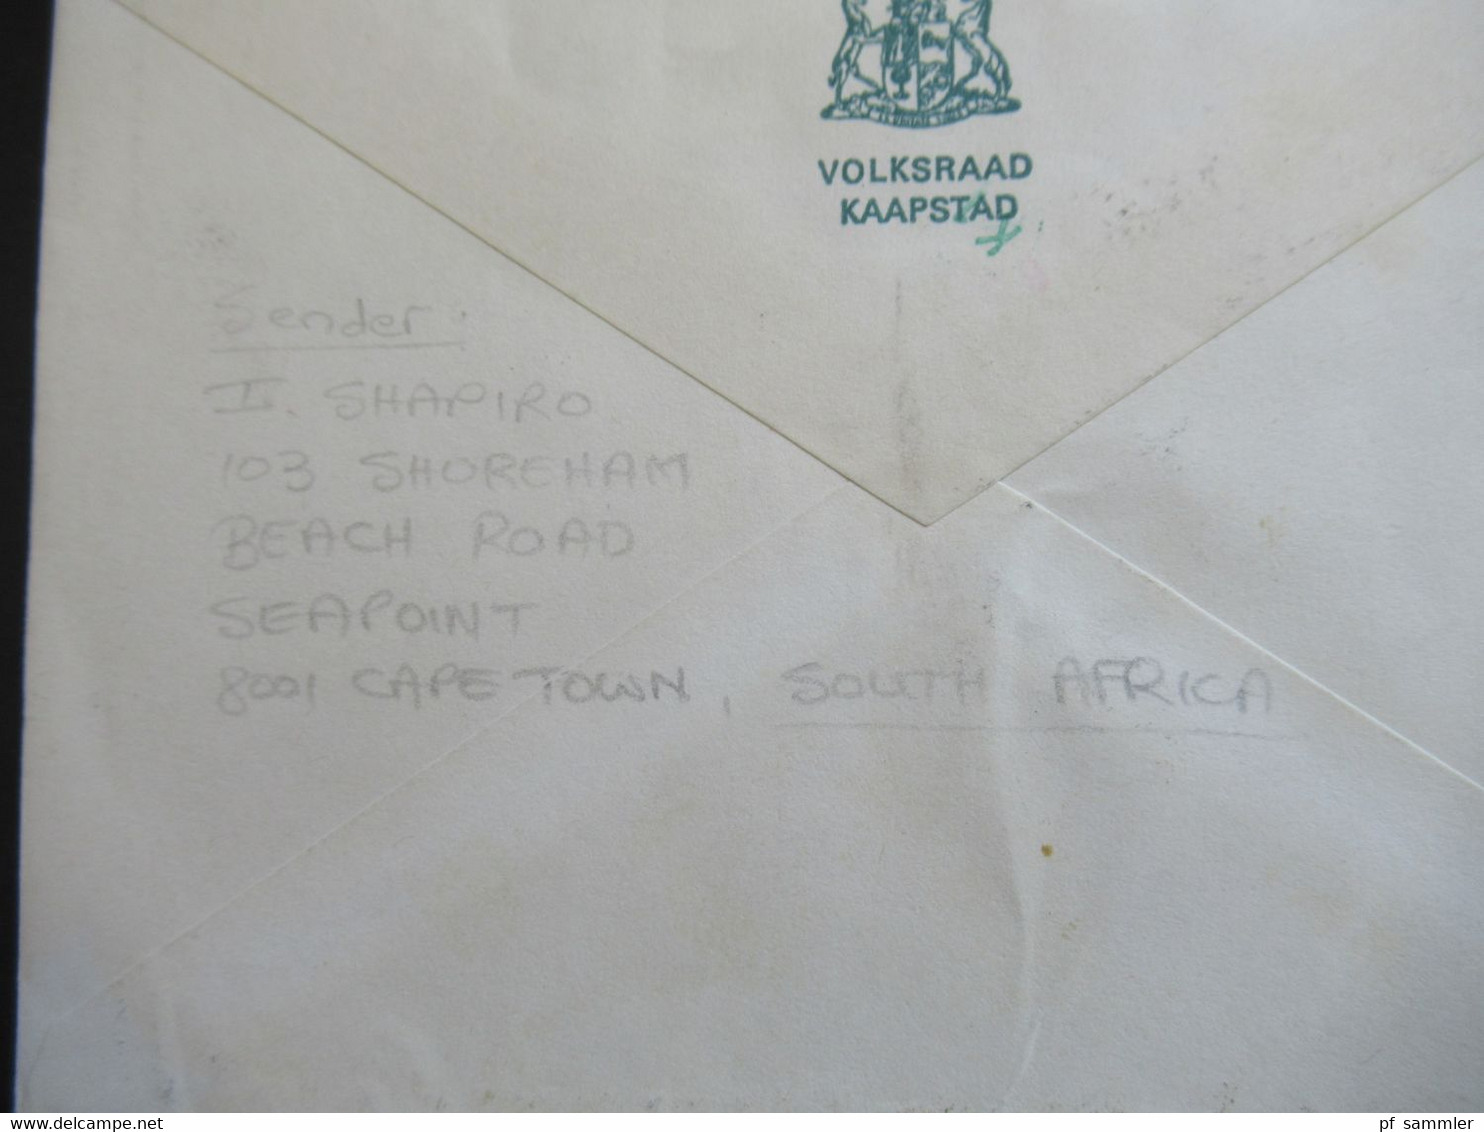 VOLKSRAAD
KAAPSTAD
Sender
I. SHAPIRO
103 SHOREHAM
BEACH ROAD
SEAPOINT
8001 CAPE TOWN, SOUTH AFRICA
www.delcampe.net
pf_sammler